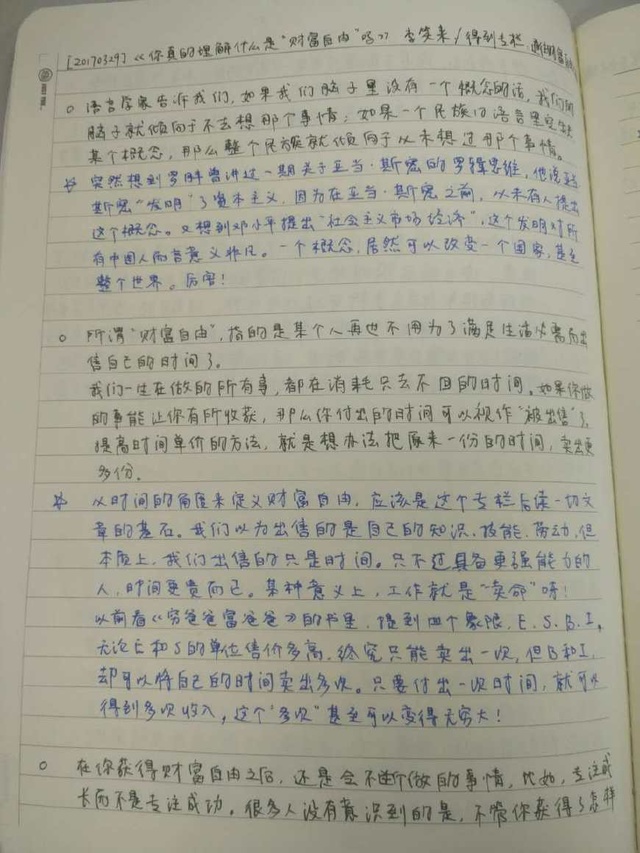 [20170329]《你真的理解什么是"财富自由"吗?》 李笑来/得到专栏·通往财富自由
○ 语言学家告诉我们,如果我们脑子里没有一个概念的话,我们的
脑子就倾向于不去想那个事情;如果一个民族的语言里
某个概念,那么整个民族就倾向于从未想过那个事情。
突然想到罗胖曾讲过一期关于亚当·斯密的罗辑思维,他说亚当
斯密"发明"了资本主义,因为在亚当·斯密之前,从未有人提出
这个概念。又想到邓小平提出"社会主义市场经济",这个发明对所
有中国人而言意义非凡。一个概念,居然可以改变一个国家,甚至
整个世界。厉害!
○ 所谓"财富自由",指的是某个人再也不用为了满足生活必需而出
售自己的时间了。
我们一生在做的所有事,都在消耗只去不回的时间。如果你做
的事能让你有所收获,那么你付出的时间可以视作"被出售"了。
提高时间单价的方法,就是想办法把原来一份的时间,卖出更
多份。
从时间的角度来定义财富自由,应该是这个专栏后续一切文
章的基石。我们以为出售的是自己的知识、技能、劳动,但
本质上,我们出售的只是时间。只不过具备更强能力的
人,时间更贵而已。某种意义上,工作就是"卖命"呀!
以前看《穷爸爸富爸爸》的书里,提到四个象限,E、S、B、I。
无论E和S的单位售价多高,终究只能卖出一次,但B和I,
却可以将自己的时间卖出多次。只要付出一次时间,就可以
得到多次收入,这个"多次"甚至可以变得无穷大!
○ 在你获得财富自由之后,还是会不断做的事情,比如,专注成
长而不是专注成功。很多人没有意识到的是,不管你获得了怎样